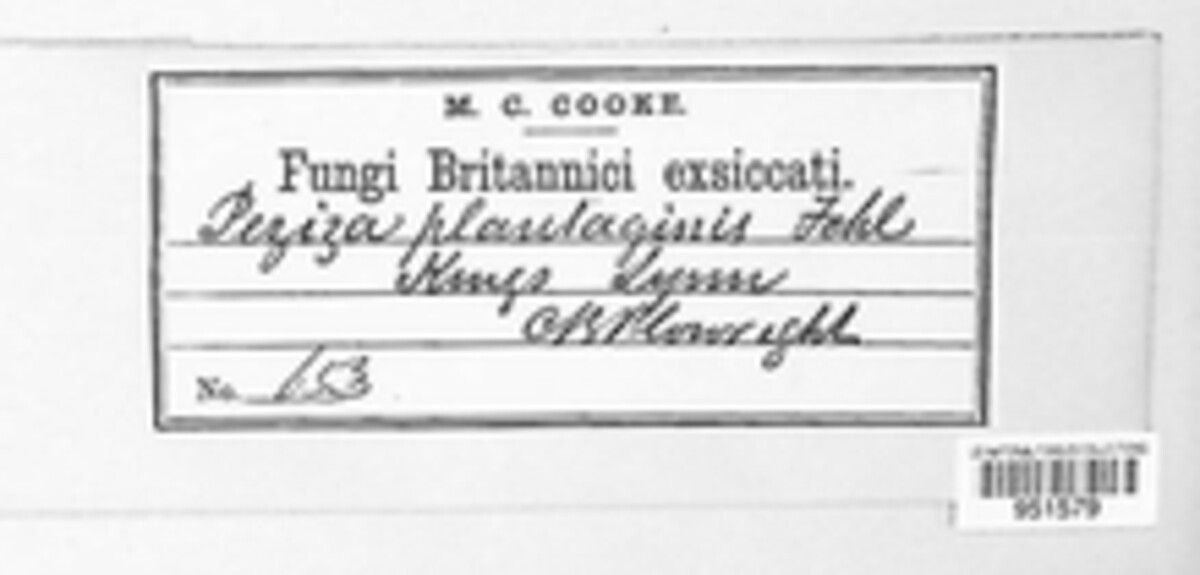 M. C. COOKE.
Fungi Britannici exsiccati.
Peziza plantaginis Fckl
Kings Lynn
CBPlowright
No. 653
951579